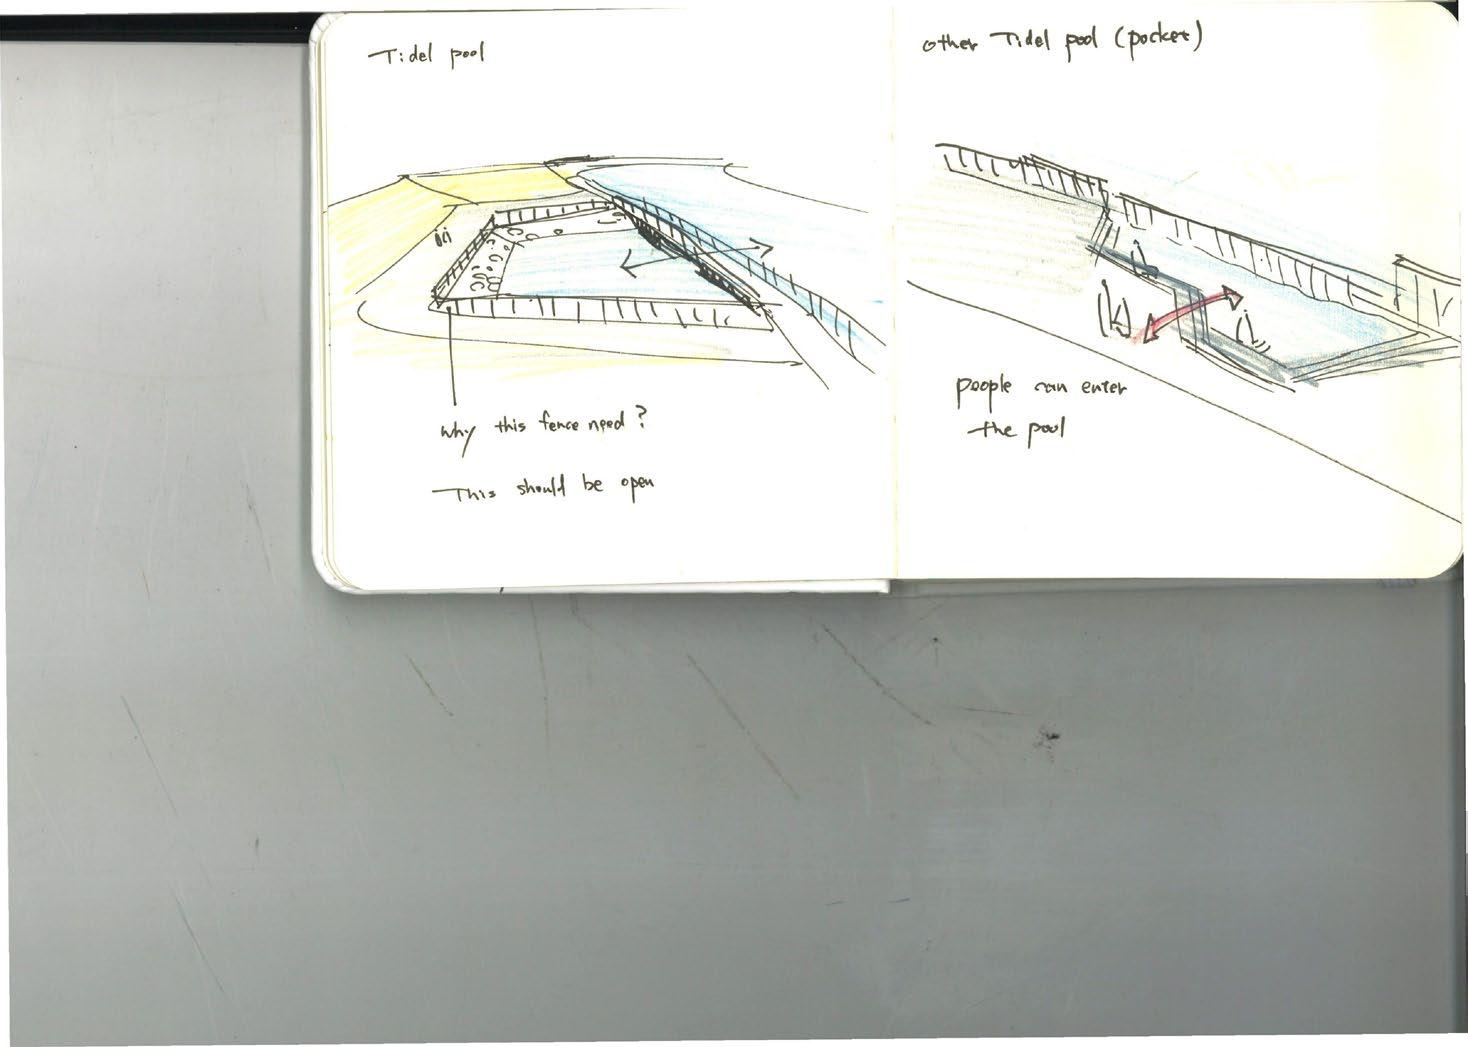 Tidel pool
why this fence need?
This should be open
other Tidel pool (pocket)
people can enter
the pool